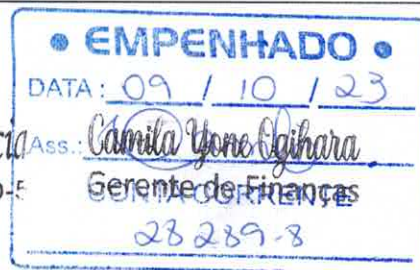 • EMPENHADO •
DATA: 09 / 10 / 23
cia
Ass.: Camila Yone Ogihara
0-5
Gerente de Finanças
CONTA CORRENTE
28289-8